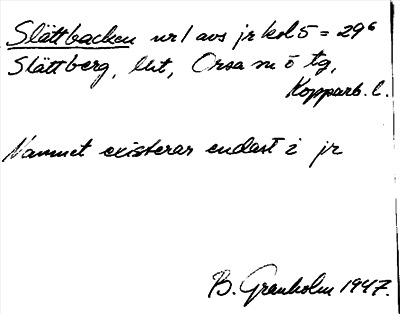 Slättbacken nr 1 avs jr kol 5 = 29⁶
Slättberg, by, Orsa sn ö tg,
Kopparb. l.
Namnet existerar endast i jr
B. Granholm 1947.